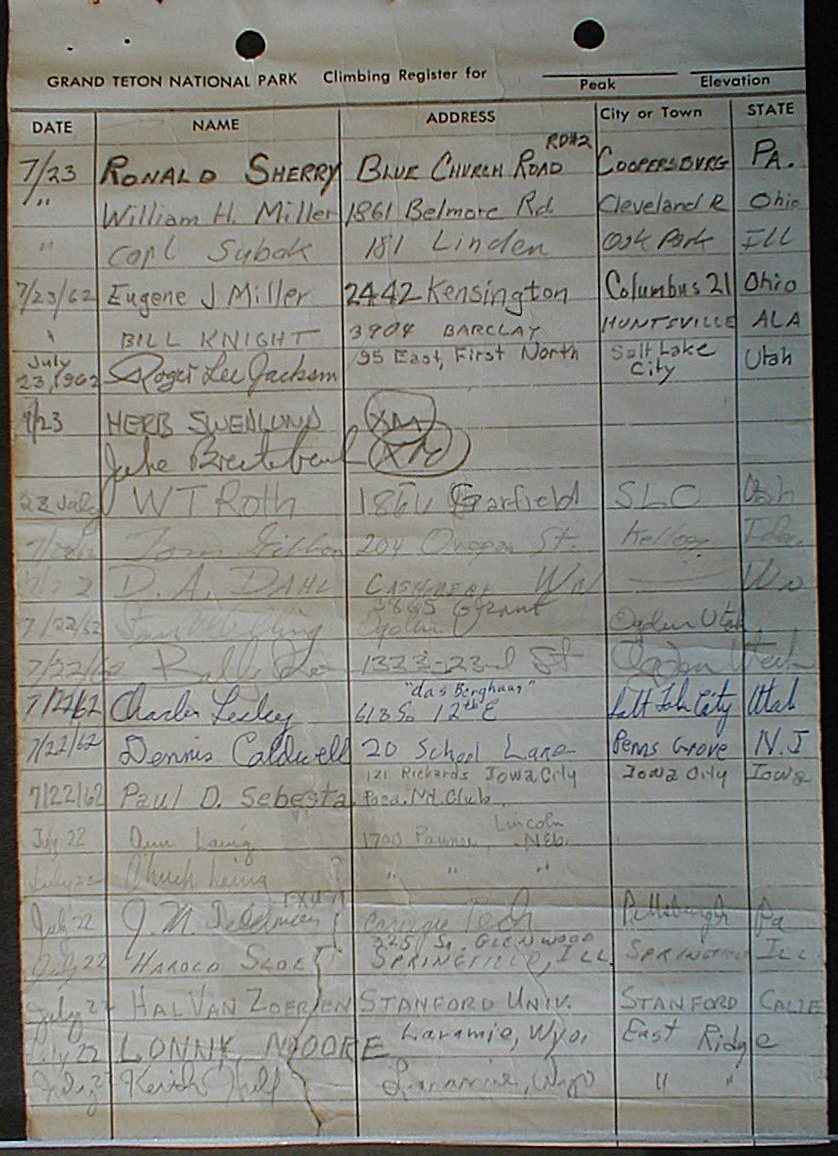 GRAND TETON NATIONAL PARK Climbing Register for
Peak Elevation
DATE NAME ADDRESS City or Town STATE
RD#2
7/23 RONALD SHERRY BLUE CHURCH ROAD COOPERSBURG PA.
" William H. Miller 1861 Belmore Rd Cleveland Ohio
" Carl Sybok 181 Linden Oak Park ILL
7/23/62 Eugene J Miller 2442 Kensington Columbus 21 Ohio
" BILL KNIGHT 3904 BARCLAY HUNTSVILLE ALA
July 95 East, First North Salt Lake Utah
23, 1962 Roger Lee Jackson City
7/23 HERB SWEDLUND XM
Jake Breitenbach XM
23 July WT Roth Garfield SLC Utah
204 Oregon St. Kellogg Ida.
D. A. DAHL CASHMERE Wn Wn
3865 Grant
7/22/62 Ogden Ogden Utah
7/22/62 1323-23rd St Ogden Utah
"das Berghaus"
7/22/62 Charles Lesley 613 So 12th E Salt Lake City Utah
7/22/62 Dennis Caldwell 20 School Lane Penns Grove N.J
121 Richards Iowa City Iowa City Iowa
7/22/62 Paul D. Sebesta Mt. Club
Lincoln
July 22 Ann 1700 Pawnee, Neb.
July 22 Chuck " " "
EXUM
July 22 J. M. Carnegie Tech Pittsburgh Pa
2251 So. GLENWOOD
July 22 HAROLD SLOET SPRINGFIELD, ILL SPRINGFIELD ILL
July 22 HAL VAN ZOEREN STANFORD UNIV. STANFORD CALIF
July 22 LONNY MOORE Laramie, Wyo. East Ridge
July 22 Keith Laramie, Wyo " "